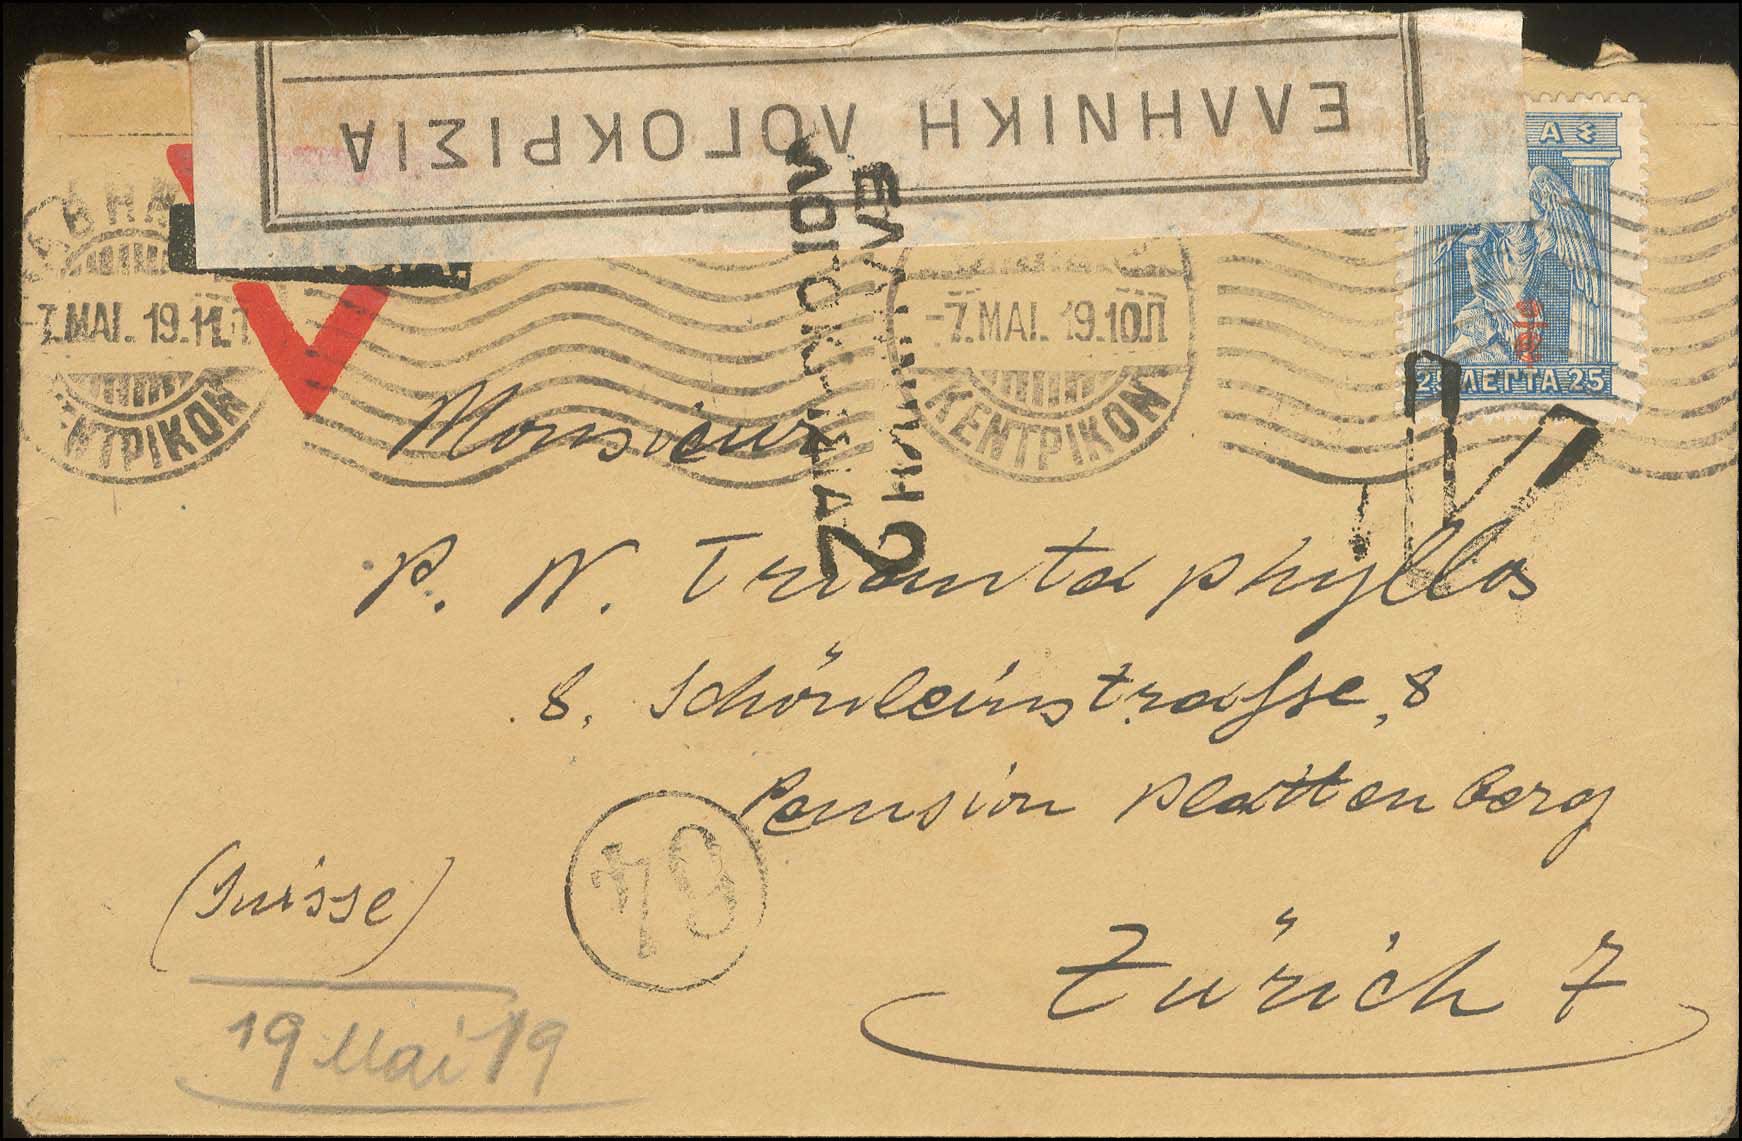 ΕΛΛΗΝΙΚΗ ΛΟΓΟΚΡΙΣΙΑ
-7.MAI. 19.11.Π
ΚΕΝΤΡΙΚΟΝ
-7.MAI. 19.10Π
ΚΕΝΤΡΙΚΟΝ
25 ΛΕΠΤΑ 25
2
2
Monsieur
P. N. Triantaphyllos
8, Schönleinstrasse, 8
Pension Plattenberg
(Suisse)
Zürich 7
19 Mai 19